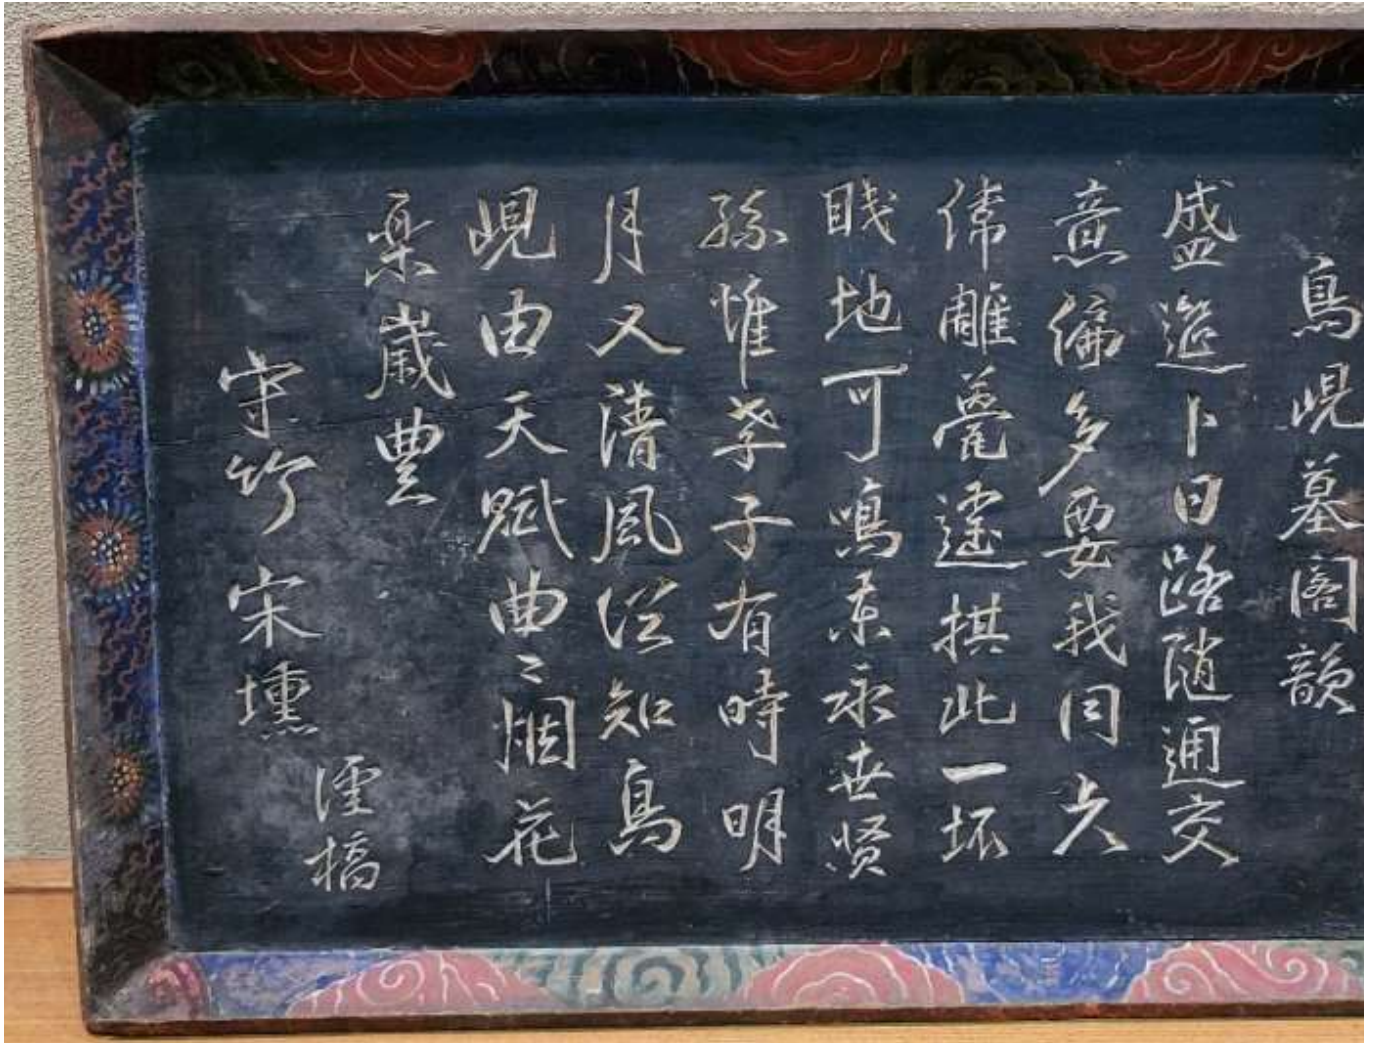 鳥峴墓閣韻
盛筵卜日路隨通交
意偏多要我同六
偉雕甍遙拱此一坏
賤地可鳴東永世賢
孫惟孝子有時明
月又淸風從知鳥
峴由天賦曲〻烟花
樂歲豊
守竹 宋壎
橋